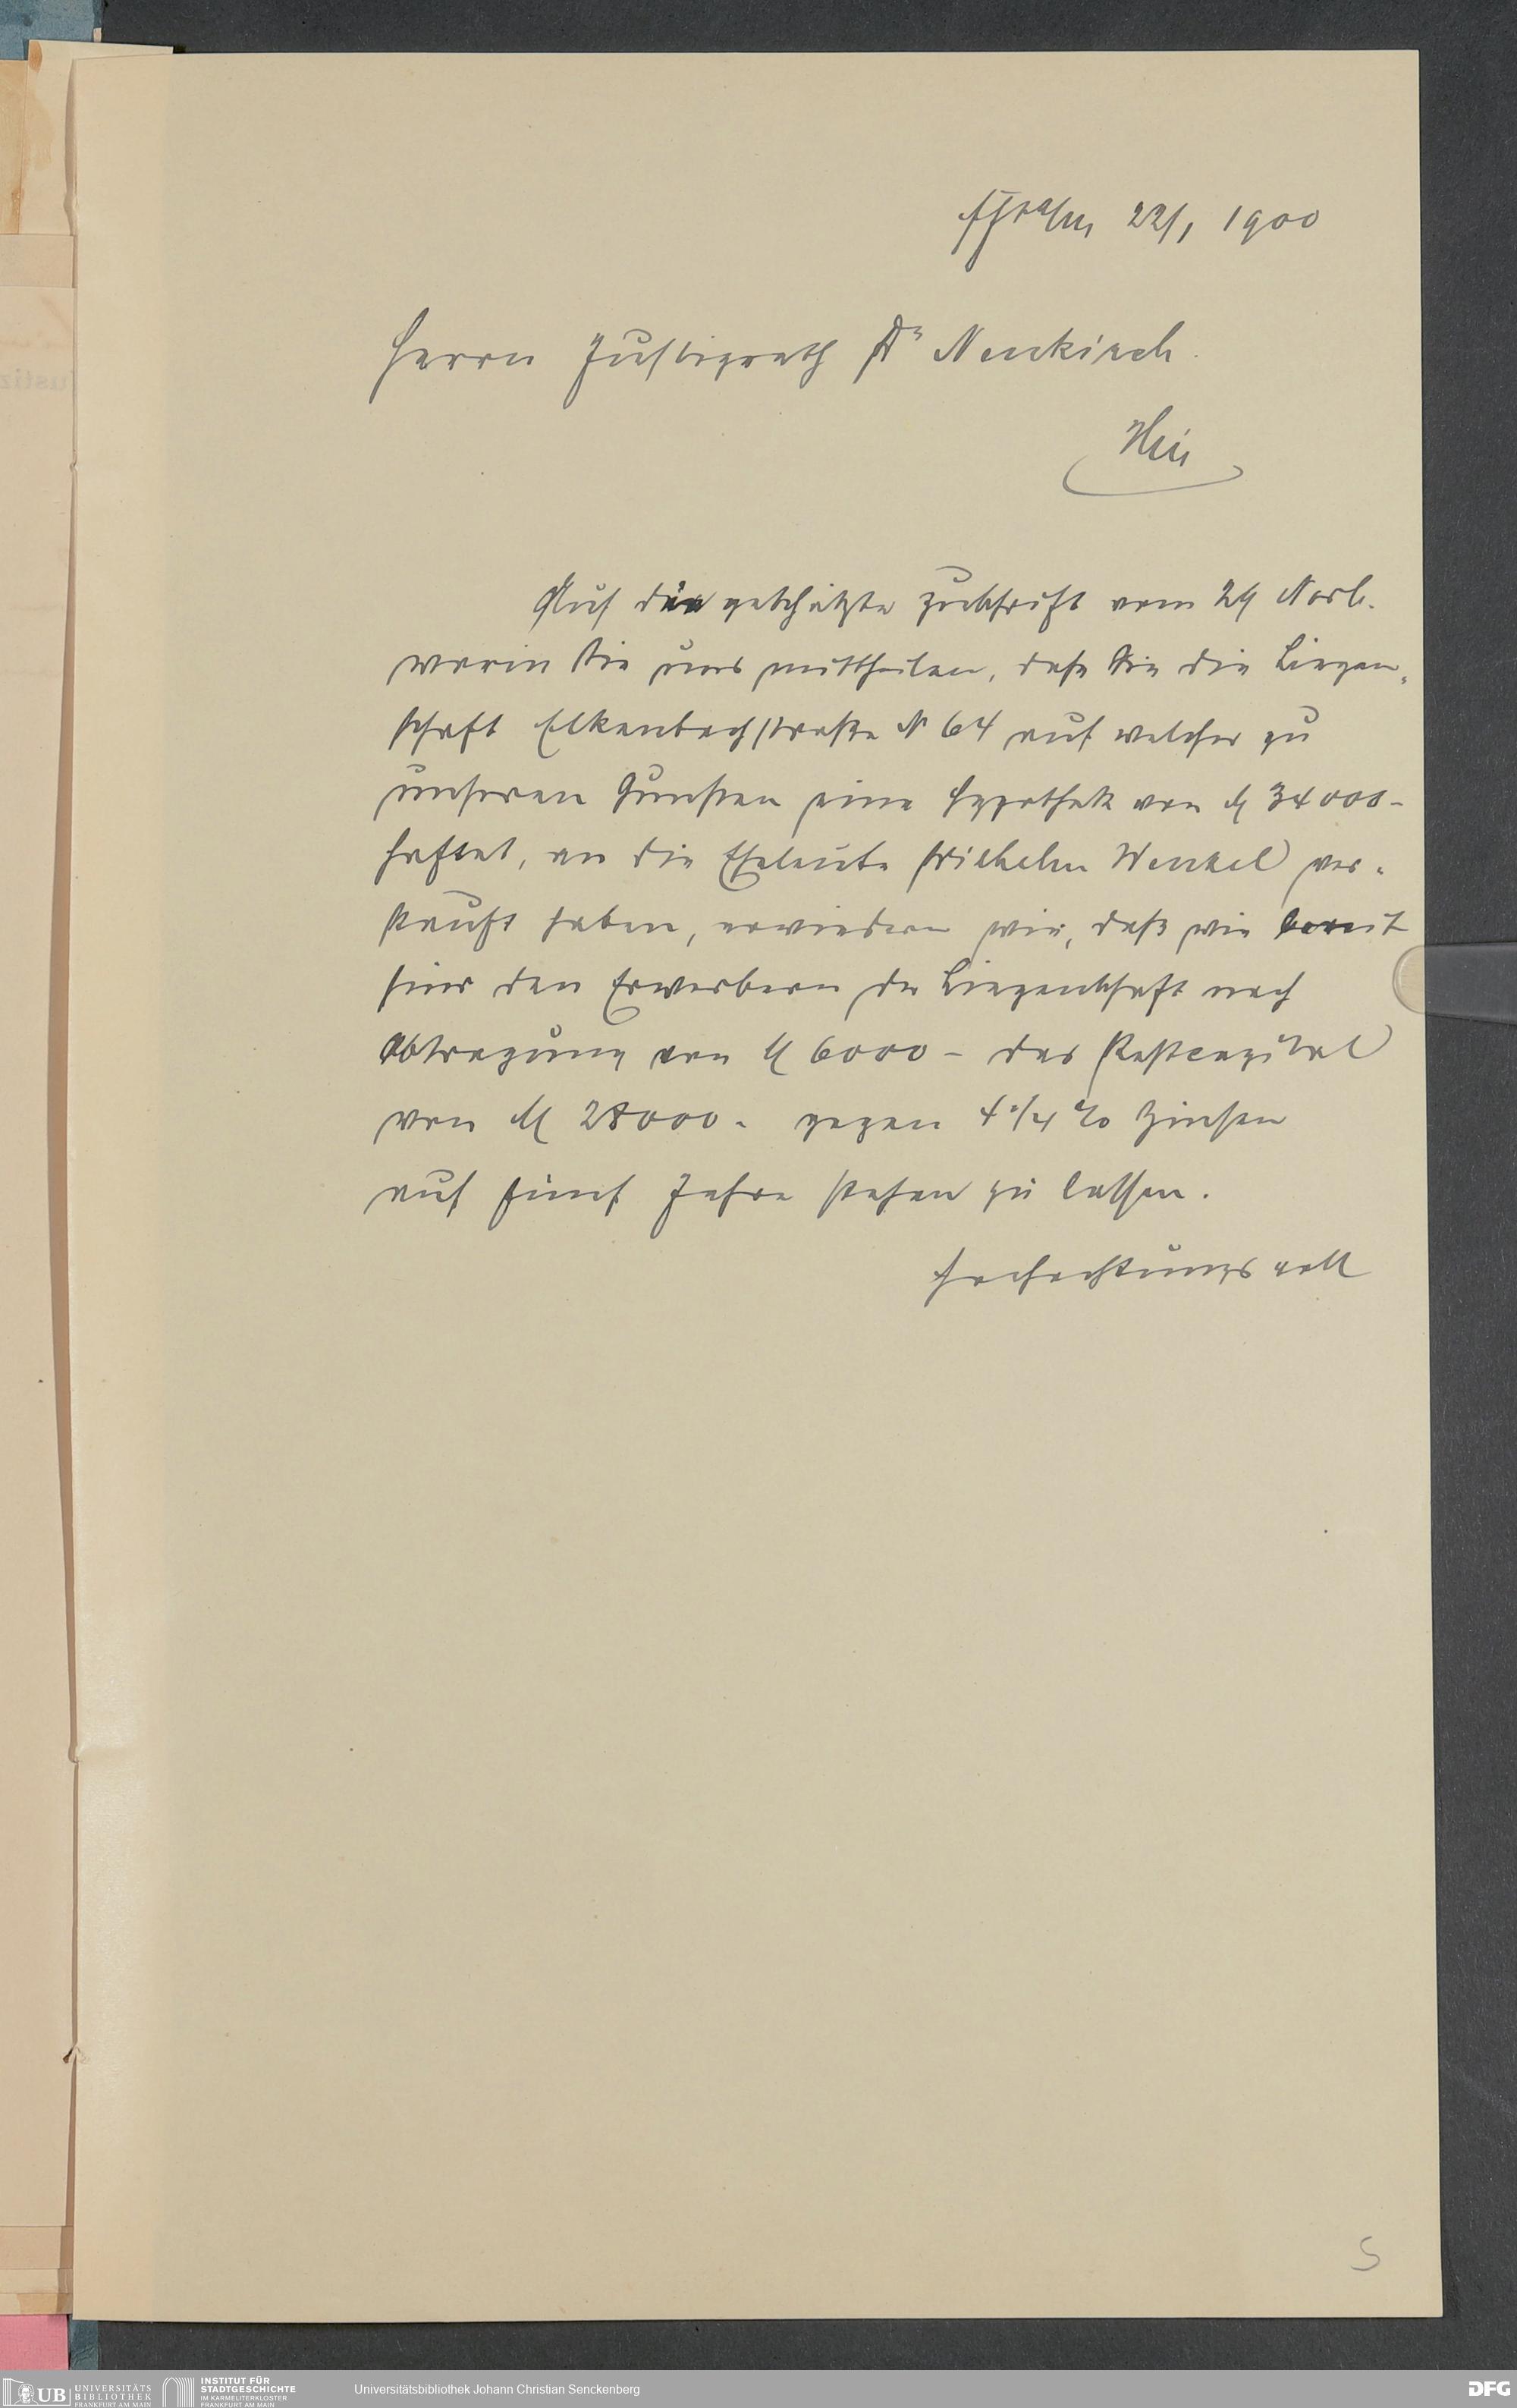 Ffta/M, 22/1 1900
Herrn Justizrath Dr Neukirch.
Hier
Auf die geschätzte Zuschrift vom 24 Novb.
worin Sie uns mittheilen, daß Sie die Liegen„
schaft Elkenbachstraße N 64 auf welcher zu
unseren Gunsten eine Hypothek von M 34000–
haftet, an die Eheleute Wilhelm Wenzel ver„
kauft haben, erwiedern wir, daß wir bereit
sind den Erwerbern der Liegenschaft nach
Abtragung von M 6000– das Restcapital
von M 28000.– gegen 4 1/4 % Zinsen
auf fünf Jahre stehen zu lassen.
Hochachtungsvoll
5
UB UNIVERSITÄTS
BIBLIOTHEK
FRANKFURT AM MAIN
INSTITUT FÜR
STADTGESCHICHTE
IM KARMELITERKLOSTER
FRANKFURT AM MAIN
Universitätsbibliothek Johann Christian Senckenberg
DFG